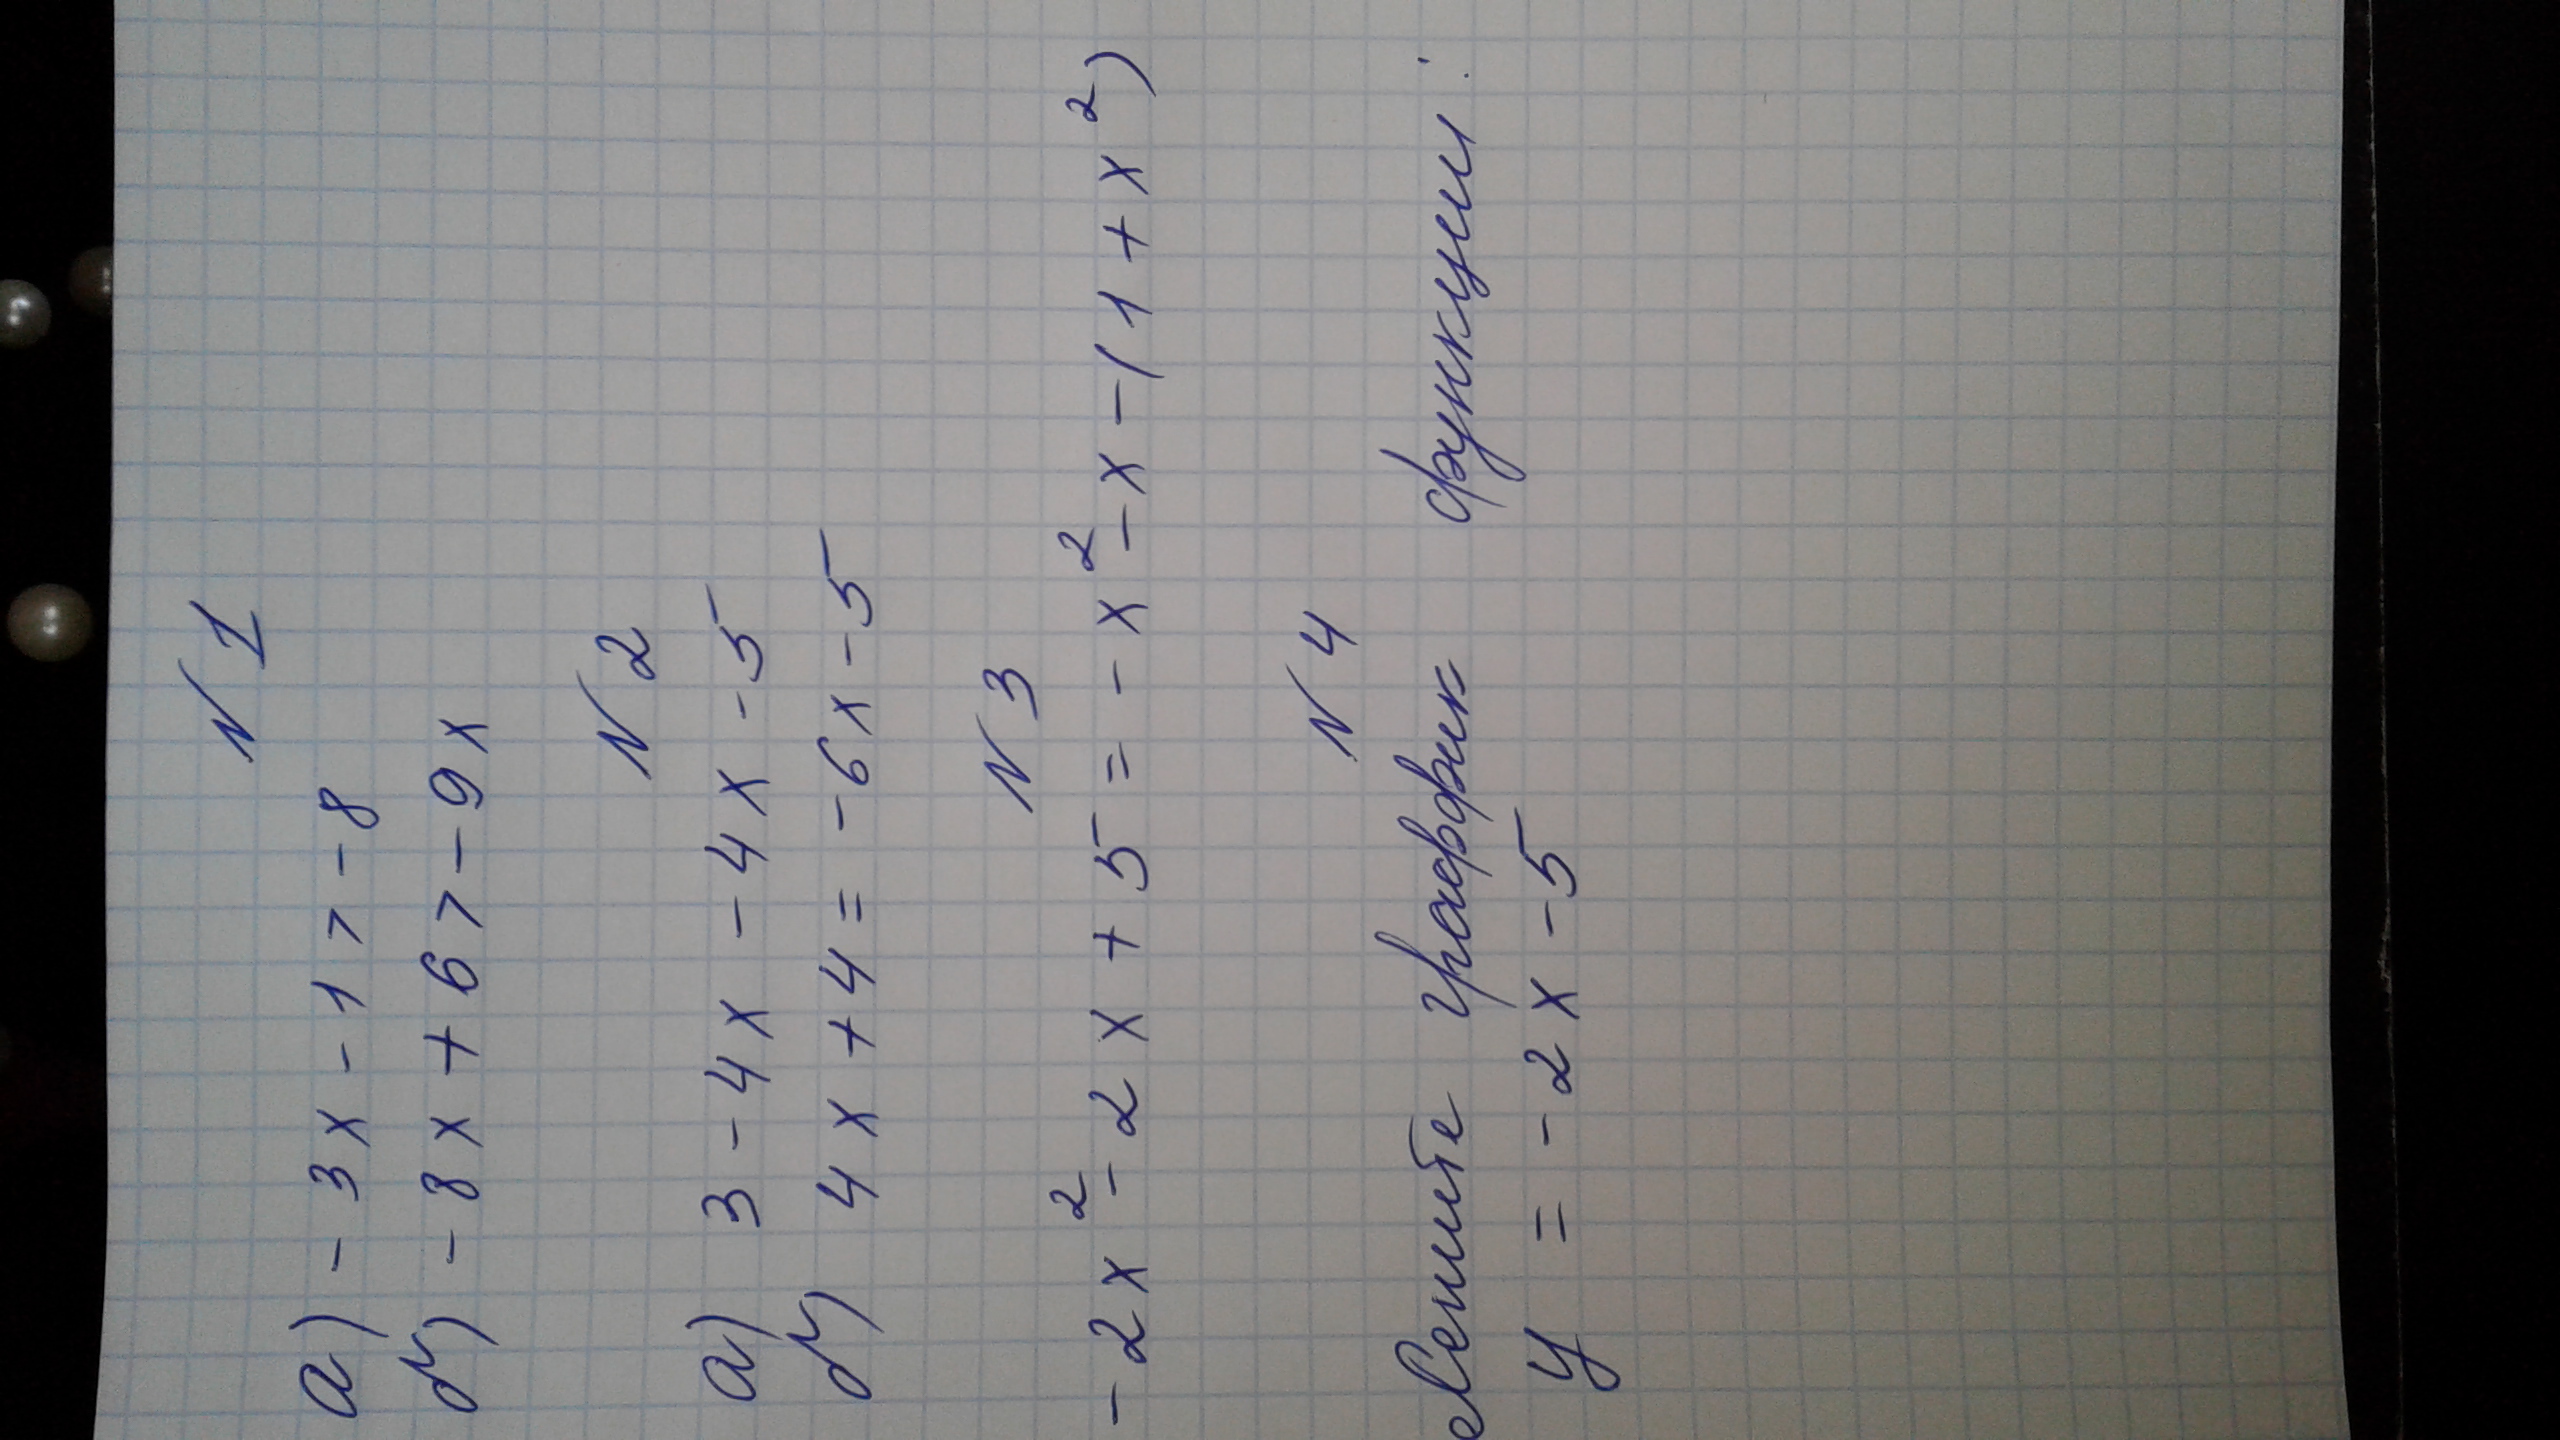 N 1
а) -3x - 1 > -8
б) -8x + 6 > -9x
N 2
а) 3 - 4x - 4x - 5
б) 4x + 4 = -6x - 5
N 3
-2x² - 2x + 5 = -x² - x - (1 + x²)
N 4
Решите график функции:
y = -2x - 5